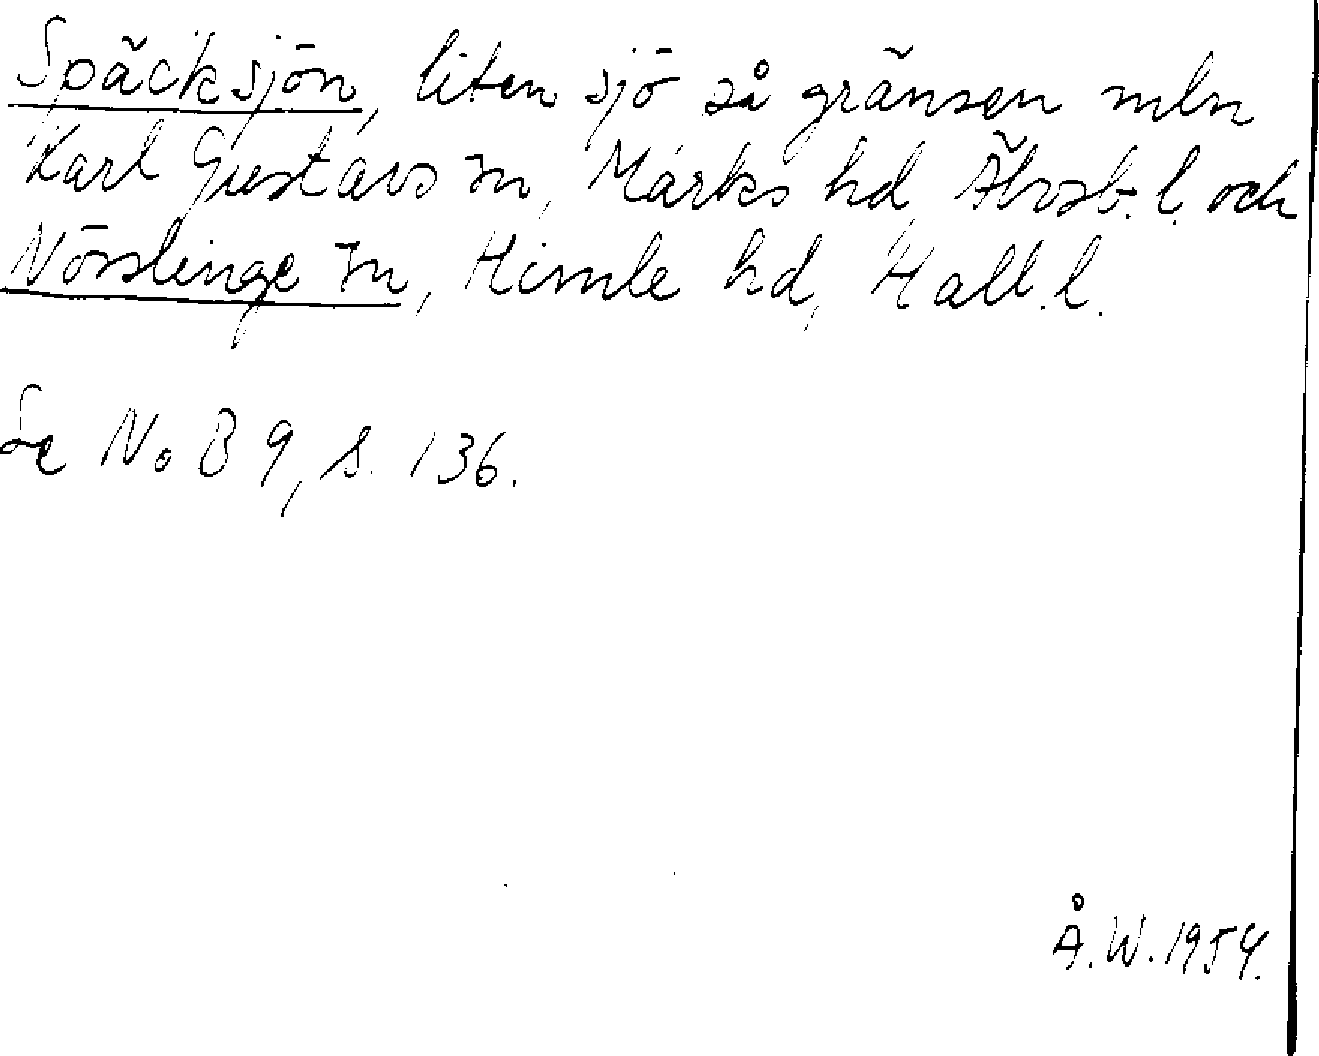 Späcksjön, liten sjö på gränsen mln
Karl Gustavs sn, Marks hd, Älvsb. l. och
Nösslinge sn, Himle hd, Hall. l.
Se NoB 9, s. 136.
Å.W. 1954.